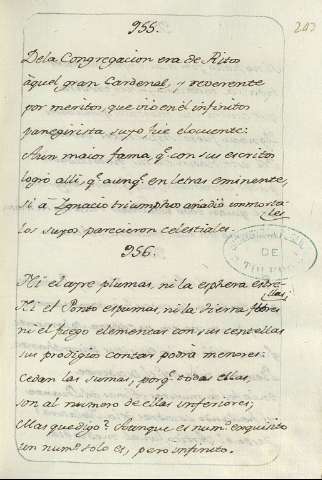 203
955.
Dela Congregacion era de Ritos
àquel gran Cardenal, y reverente
por meritos, que viò en èl infinitos
panegirista suyo fuè eloquente:
Aun maior fama, q.e con sus escritos
logrò alli, q.e aunq.e en letras eminente,
si à Ignacio triumphos añadiò inmorta-
les
los suyos parecieron celestiales.
956.
Ni el ayre plumas, ni la esphera estre-
llas;
Ni el Ponto espumas, ni la tierra flores
ni el fuego elementar con sus centellas
sus prodigios contar podrà menores:
cedan las sumas, porq.e todas ellas,
son al numero de ellas inferiores;
Mas que digo? Aunque es num.o exquisito
un num.o solo es, pero infinito.
DE
TOLEDO